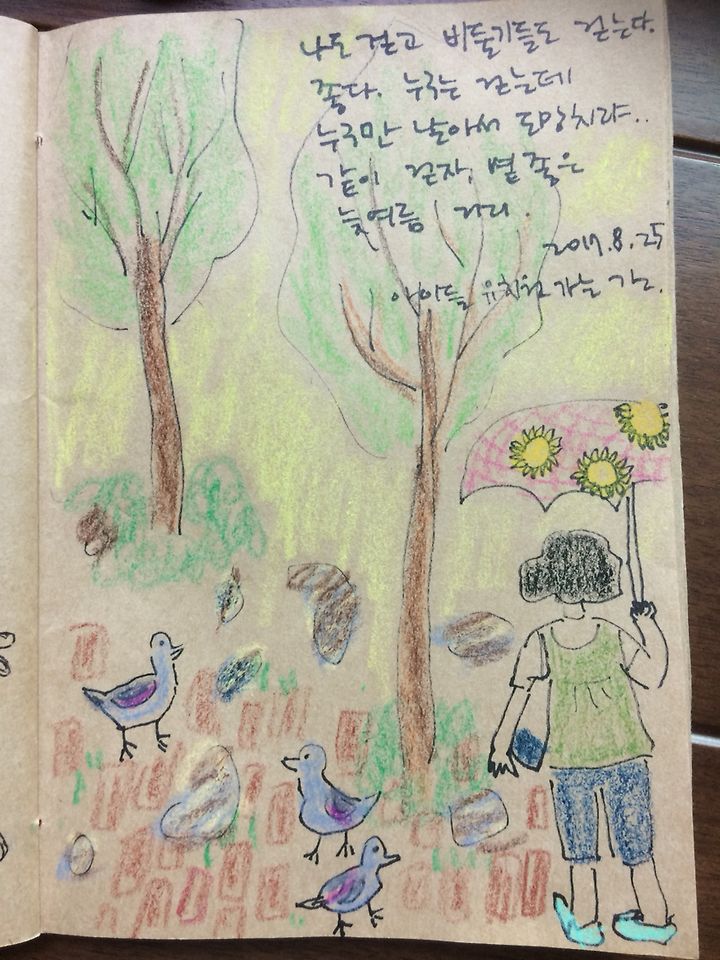 나도 걷고 비둘기들도 걷는다.
좋다. 누구는 걷는데
누구만 날아서 도망치랴..
같이 걷자, 볕 좋은
늦여름 거리.
2017.8.25
아이들 유치원 가는 길.